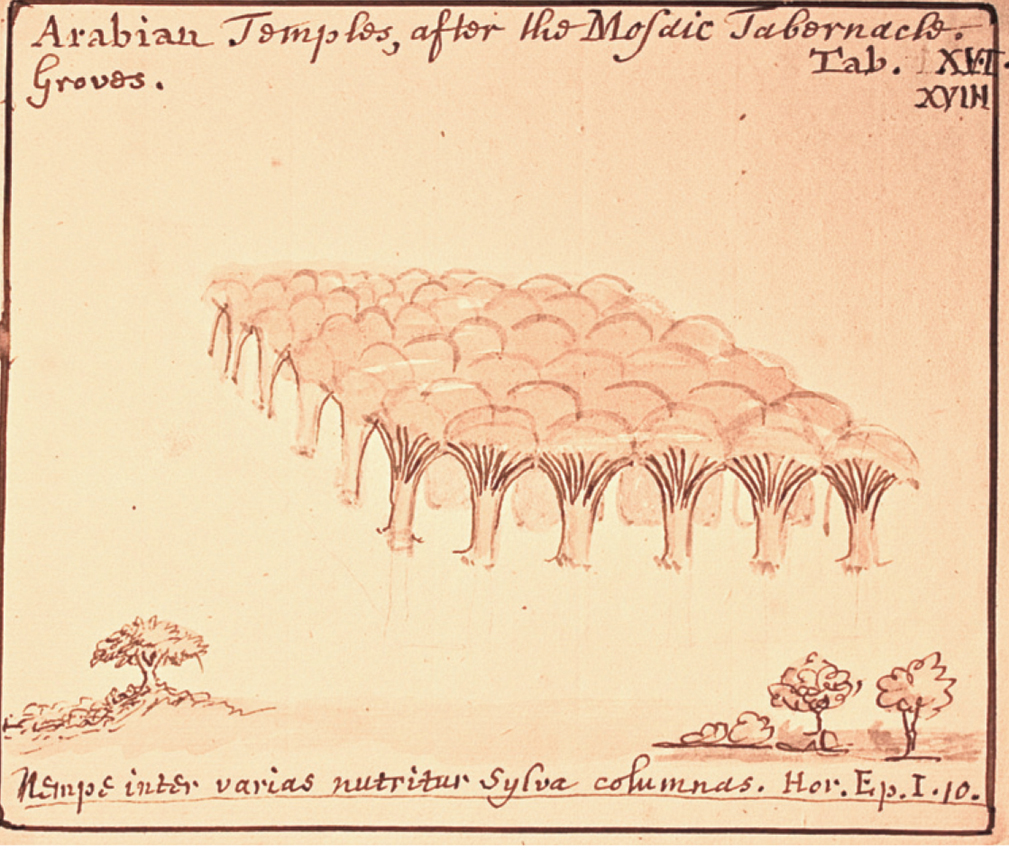 Arabian Temples, after the Moſaic Tabernacle.
Groves.
Tab. XVI.
XVIII
Nempe inter varias nutritur Sylva columnas. Hor. Ep. I. 10.